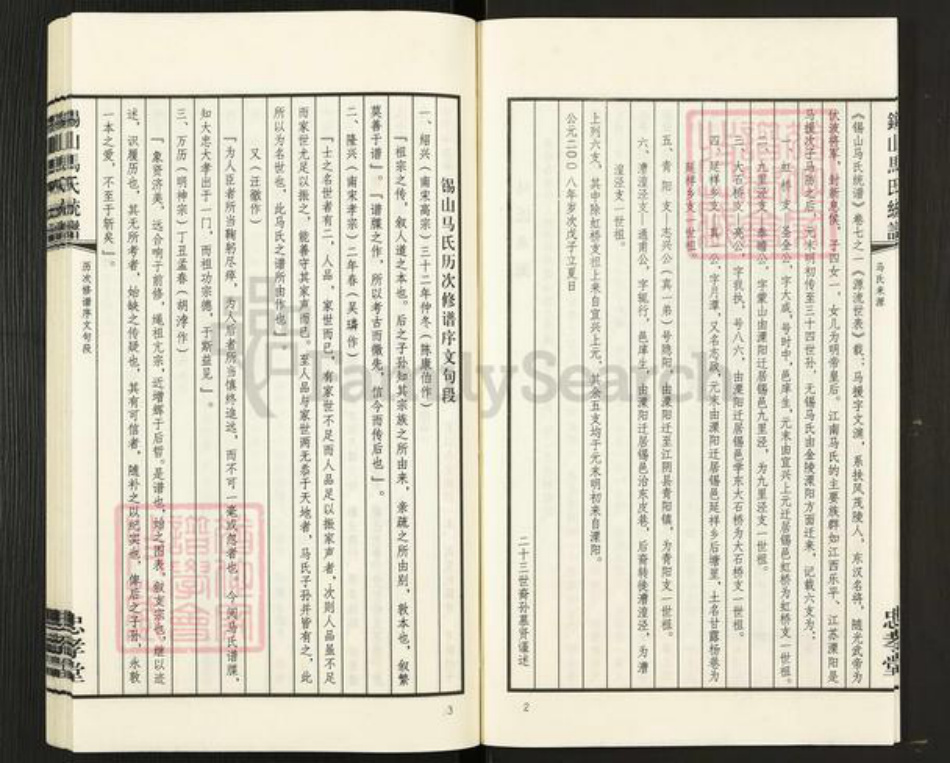 锡山马氏统谱
马氏来源
忠孝堂
《锡山马氏统谱》卷七之一《源流世表》载：马援字文渊，系扶风茂陵人，东汉名将，随光武帝为
伏波将军，封新息侯，子四女一，女儿为明帝皇后。江南马氏的主要族群如江西乐平、江苏溧阳是
马援次子马防之后，元末明初传至三十四世孙，无锡马氏由金陵溧阳方面迁来，记载六支为：
一、虹桥支—圣全公，字大成，号时中，邑庠生，元末由宜兴上元迁居锡邑虹桥为虹桥支一世祖。
二、九里泾支—泰暗公，字蒙山由溧阳迁居锡邑九里泾，为九里泾支一世祖。
三、大石桥支—亮公，字我执，号八六，由溧阳迁居锡邑学东大石桥为大石桥支一世祖。
四、延祥乡支—真一公，字月潭，又名志政，元末由溧阳迁居锡邑延祥乡后塘里，土名甘露杨巷为
延祥乡支一世祖。
五、青阳支—志兴公（真一弟）号隐阳，由溧阳迁至江阴县青阳镇，为青阳支一世祖。
六、漕湟泾支—通甫公，字砥行，邑庠生，由溧阳迁居锡邑治东皮巷，后裔转徙漕湟泾，为漕
湟泾支一世祖。
上列六支，其中除虹桥支祖上来自宜兴上元，其余五支均于元末明初来自溧阳。
公元二〇〇八年岁次戊子立夏日
二十三世裔孙慕贤谨述
2
锡山马氏历次修谱序文句段
一、绍兴（南宋高宗）三十二年仲冬（陈康伯作）
『祖宗之传，叙人道之本也。后之子孙知其宗族之所由来，亲疏之所由别，敦本也，叙繁
莫善于谱』。『谱牒之作，所以考古而徵先，信今而传后也』。
二、隆兴（南宋孝宗）二年春（吴璘作）
『士之名世者有二，人品、家世而已，有家世不足而人品足以振家声者，次则人品虽不足
而家世尤足以振之，能善守其家声而已。至人品与家世两无忝于天地者，马氏子孙并皆有之，此
所以为名世也，此马氏之谱所由作也。
又（汪徹作）
『为人臣者所当鞠躬尽瘁，为人后者所当慎终追远，而不可一毫或忽者也，今阅马氏谱牒，
知大忠大孝出于一门，而祖功宗德，于斯益见』。
三、万历（明神宗）丁丑孟春（胡涍作）
『象贤济美，远合响于前修，绳祖亢宗，近增辉于后哲。是谱也，始之图表，叙支宗也，继以迹
述，识履历也，其无所考者，始缺之传疑也，其有可信者，随补之以纪实也，俾后之子孙，永敦
一本之爱，不至于斩矣』。
3
锡山马氏统谱
历次修谱序文句段
忠孝堂
FamilySearch